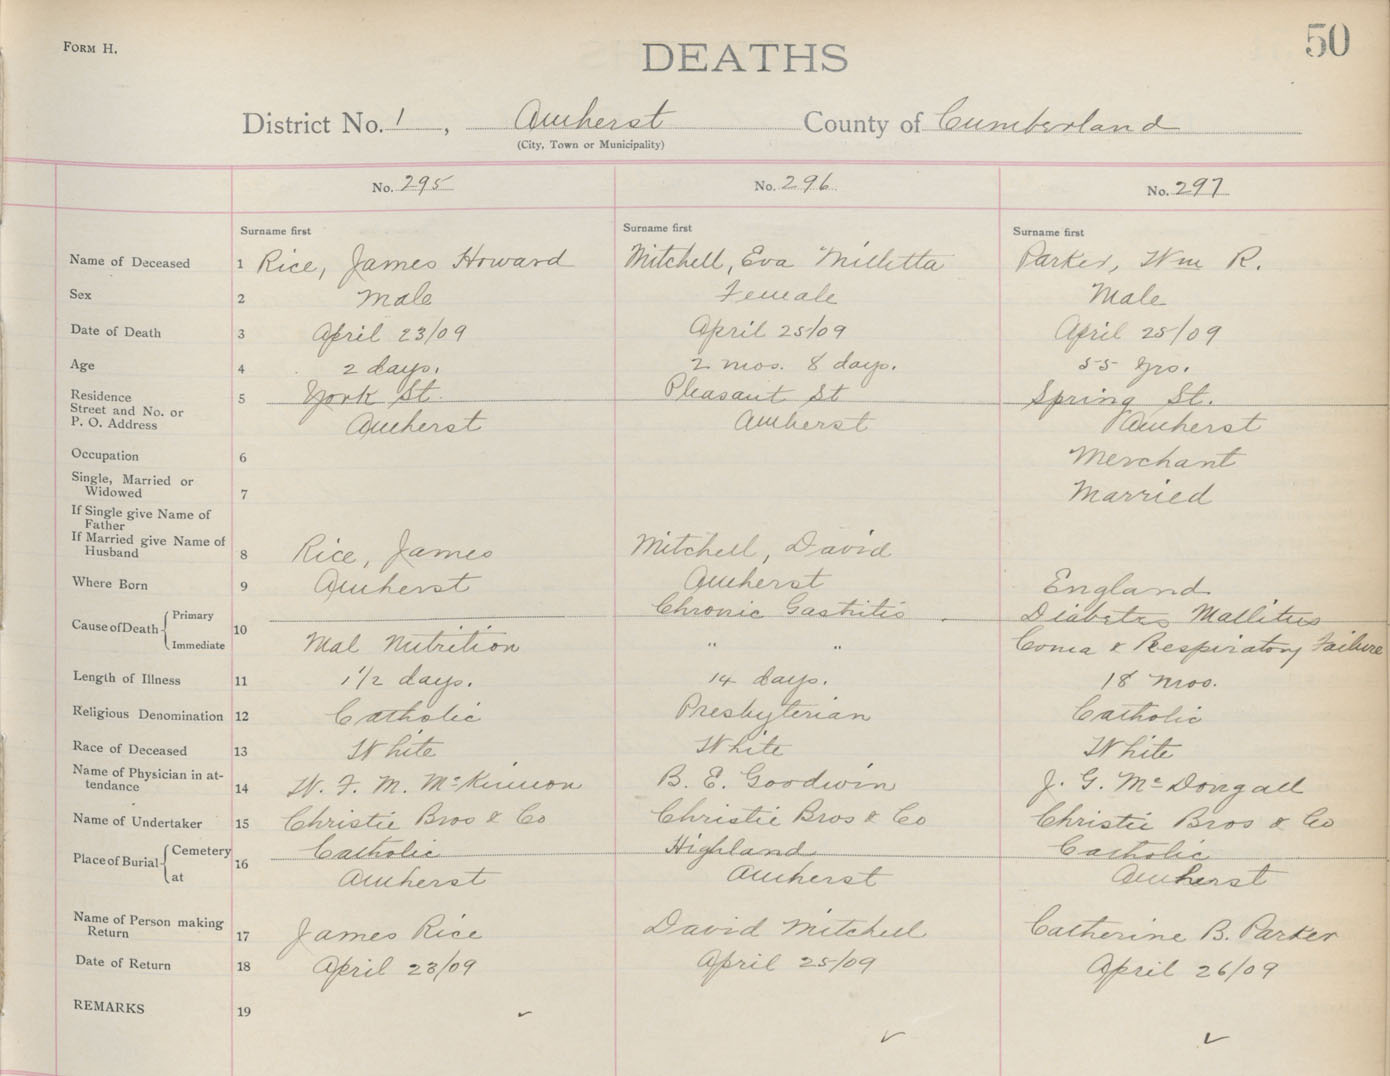 FORM H.
DEATHS
50
District No. 1, Amherst County of Cumberland
(City, Town or Municipality)
No. 295 No. 296 No. 297
Surname first Surname first Surname first
Name of Deceased 1 Rice, James Howard Mitchell, Eva Milletta Parker, Wm R.
Sex 2 Male Female Male
Date of Death 3 April 23/09 April 25/09 April 25/09
Age 4 2 days. 2 mos. 8 days. 55 yrs.
Residence 5 York St. Pleasant St Spring St.
Street and No. or
P. O. Address Amherst Amherst Amherst
Occupation 6 Merchant
Single, Married or
Widowed 7 Married
If Single give Name of
Father
If Married give Name of
Husband 8 Rice, James Mitchell, David
Where Born 9 Amherst Amherst England
Cause of Death 10 Primary Chronic Gastritis Diabetes Mallitus
Immediate Mal Nutrition " " Coma & Respiratory Failure
Length of Illness 11 1½ days. 14 days. 18 mos.
Religious Denomination 12 Catholic Presbyterian Catholic
Race of Deceased 13 White White White
Name of Physician in at-
tendance 14 W. F. M. McKinnon B. E. Goodwin J. G. McDougall
Name of Undertaker 15 Christie Bros & Co Christie Bros & Co Christie Bros & Co
Place of Burial 16 Cemetery Catholic Highland Catholic
at Amherst Amherst Amherst
Name of Person making
Return 17 James Rice David Mitchell Catherine B. Parker
Date of Return 18 April 23/09 April 25/09 April 26/09
REMARKS 19